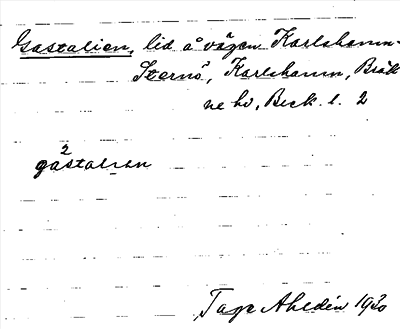 Gastalien, lid å vägen Karlshamn-
Sternö, Karlshamn, Bräk
ne hd, Beck. l. 2
2
gastalien
Tage Ahldén 1930